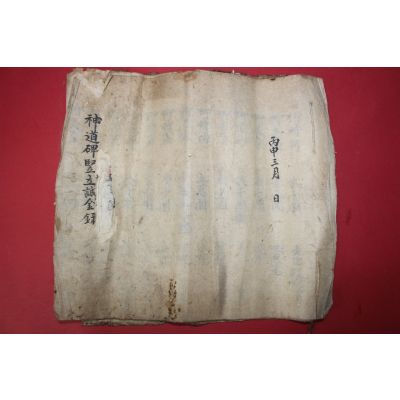 丙申三月 日
神道碑竪立誠金錄